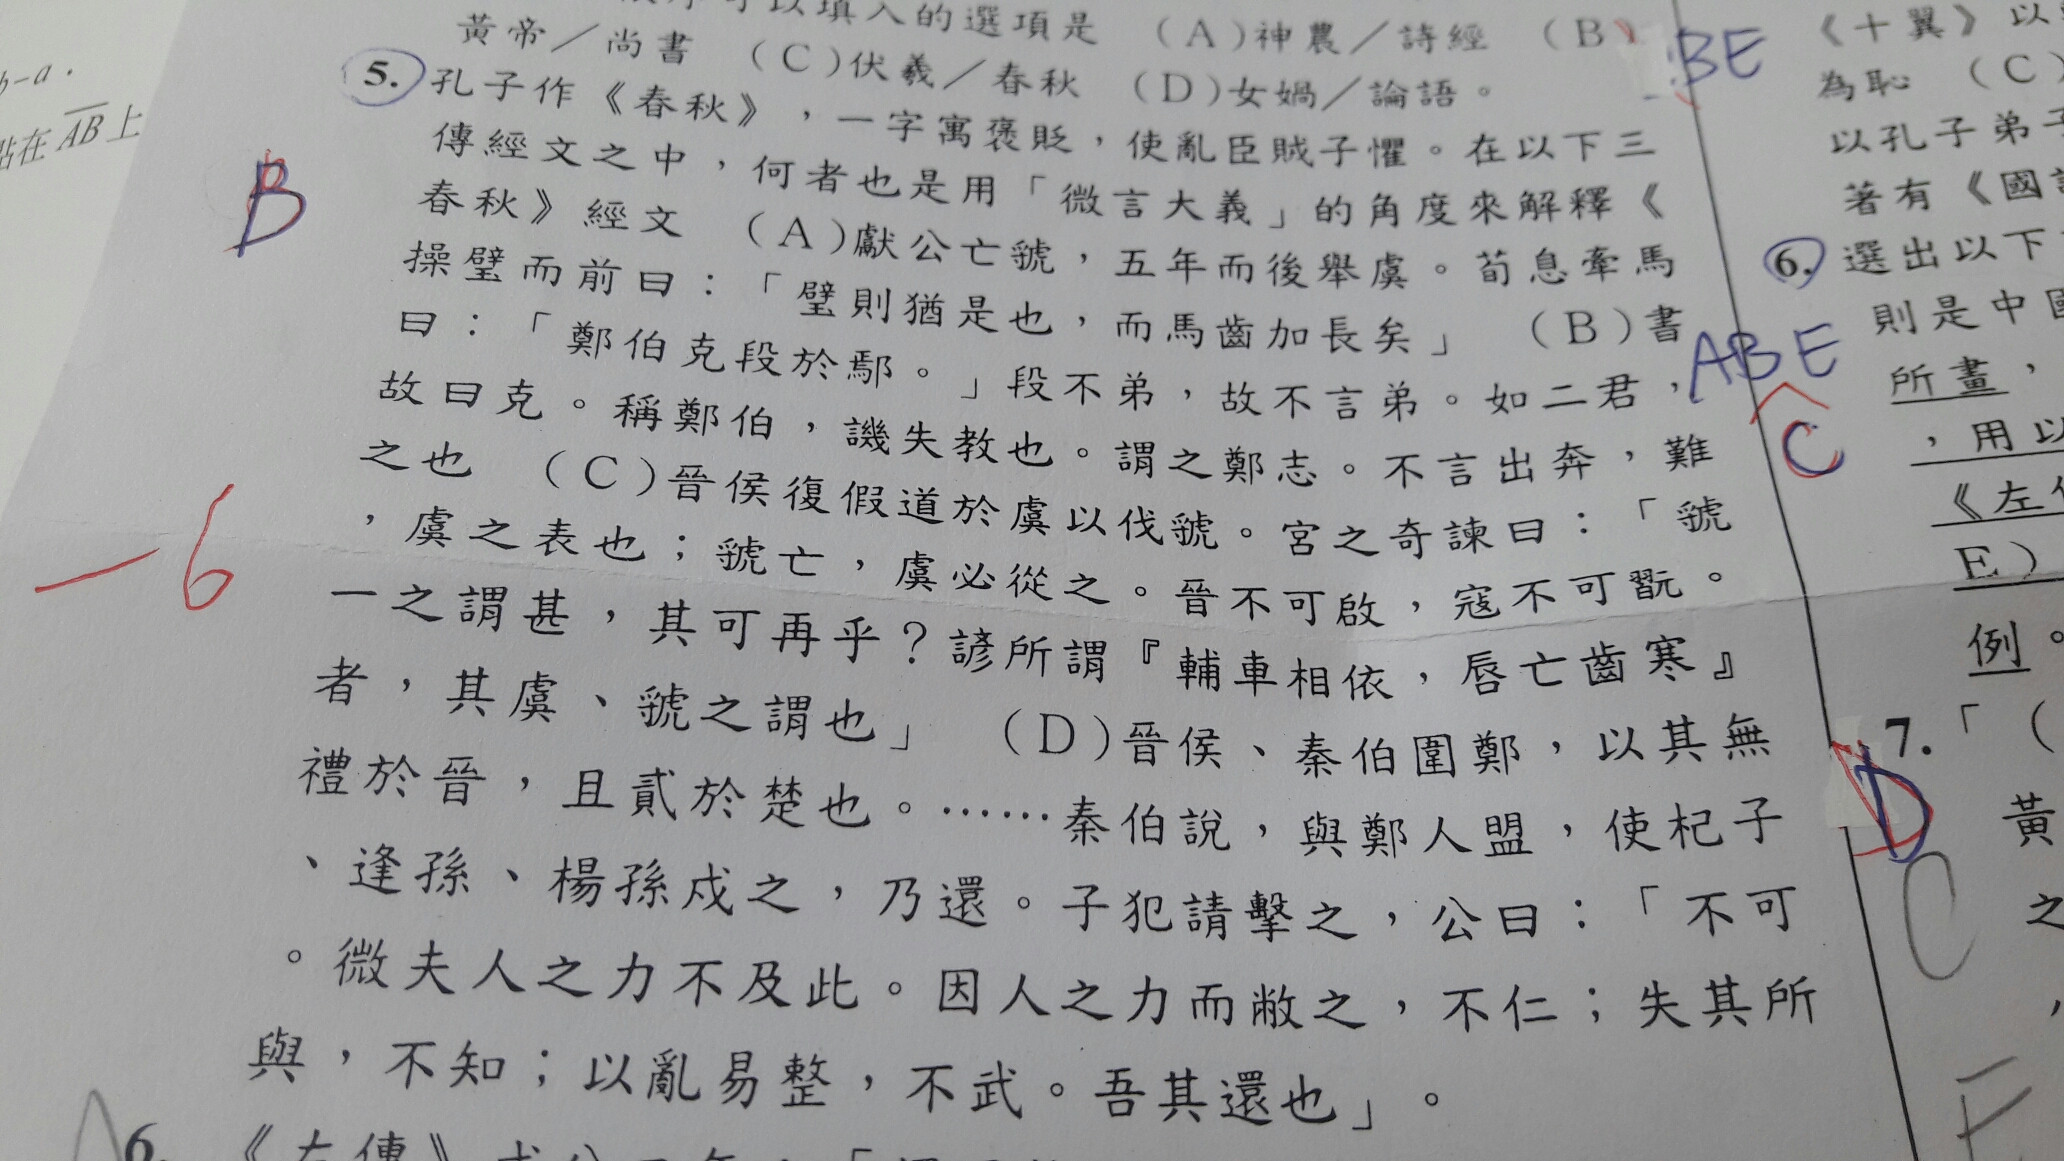 b-a.
點在AB上
可以填入的選項是 (A)神農/詩經 (B)
黃帝/尚書 (C)伏羲/春秋 (D)女媧/論語。
5. 孔子作《春秋》,一字寓褒貶,使亂臣賊子懼。在以下三
傳經文之中,何者也是用「微言大義」的角度來解釋《
春秋》經文 (A)獻公亡虢,五年而後舉虞。荀息牽馬
操璧而前曰:「璧則猶是也,而馬齒加長矣」 (B)書
曰:「鄭伯克段於鄢。」段不弟,故不言弟。如二君,
故曰克。稱鄭伯,譏失教也。謂之鄭志。不言出奔,難
之也 (C)晉侯復假道於虞以伐虢。宮之奇諫曰:「虢
,虞之表也;虢亡,虞必從之。晉不可啟,寇不可翫。
一之謂甚,其可再乎?諺所謂『輔車相依,唇亡齒寒』
者,其虞、虢之謂也」 (D)晉侯、秦伯圍鄭,以其無
禮於晉,且貳於楚也。……秦伯說,與鄭人盟,使杞子
、逢孫、楊孫戍之,乃還。子犯請擊之,公曰:「不可
。微夫人之力不及此。因人之力而敝之,不仁;失其所
與,不知;以亂易整,不武。吾其還也」。
6. 《左傳》
B
-6
BE
ABE
C
D
C
《十翼》以
為恥 (C)
以孔子弟子
著有《國
6. 選出以下
則是中國
所畫,
,用以
《左
E)
例。
7. 「(
黃
之